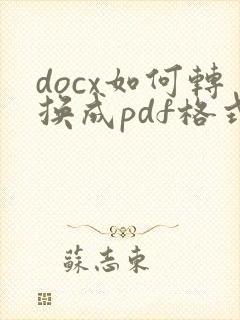 docx如何轉
換成pdf格式
蘇志東